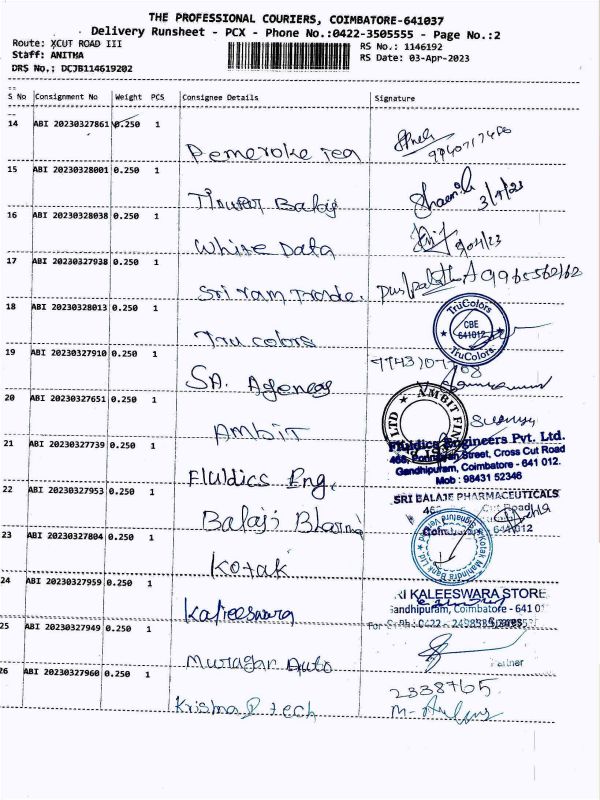 THE PROFESSIONAL COURIERS, COIMBATORE-641037
Delivery Runsheet - PCX - Phone No.:0422-3505555 - Page No.:2
Route: XCUT ROAD III
RS No.: 1146192
Staff: ANITHA
RS Date: 03-Apr-2023
DRS No.: DCJB114619202
S No Consignment No Weight PCS Consignee Details Signature
14 ABI 20230327861 0.250 1
Pemeroke Tea
15 ABI 20230328001 0.250 1
Tirupur Balaji
3/4/23
16 ABI 20230328038 0.250 1
White Data
17 ABI 20230327938 0.250 1
Sri ram Trade.
9965562162
18 ABI 20230328013 0.250 1
Tru colors
TruColors
CBE
641012
TruColors
19 ABI 20230327910 0.250 1
SA. Agency
20 ABI 20230327651 0.250 1
Ambit
AMBIT FIN
LTD
21 ABI 20230327739 0.250 1
Fluidics Eng.
Fluidics Engineers Pvt. Ltd.
Street, Cross Cut Road
Gandhipuram, Coimbatore - 641 012.
Mob : 98431 52346
22 ABI 20230327953 0.250 1
Balaji Bharma
SRI BALAJE PHARMACEUTICALS
23 ABI 20230327804 0.250 1
Kotak
Kotak Mahindra Bank Ltd.
24 ABI 20230327959 0.250 1
Kaleeswara
RI KALEESWARA STORE
Gandhipuram, Coimbatore - 641 01
25 ABI 20230327949 0.250 1
Murugan Auto
Partner
26 ABI 20230327960 0.250 1
Krishna D tech
2338765